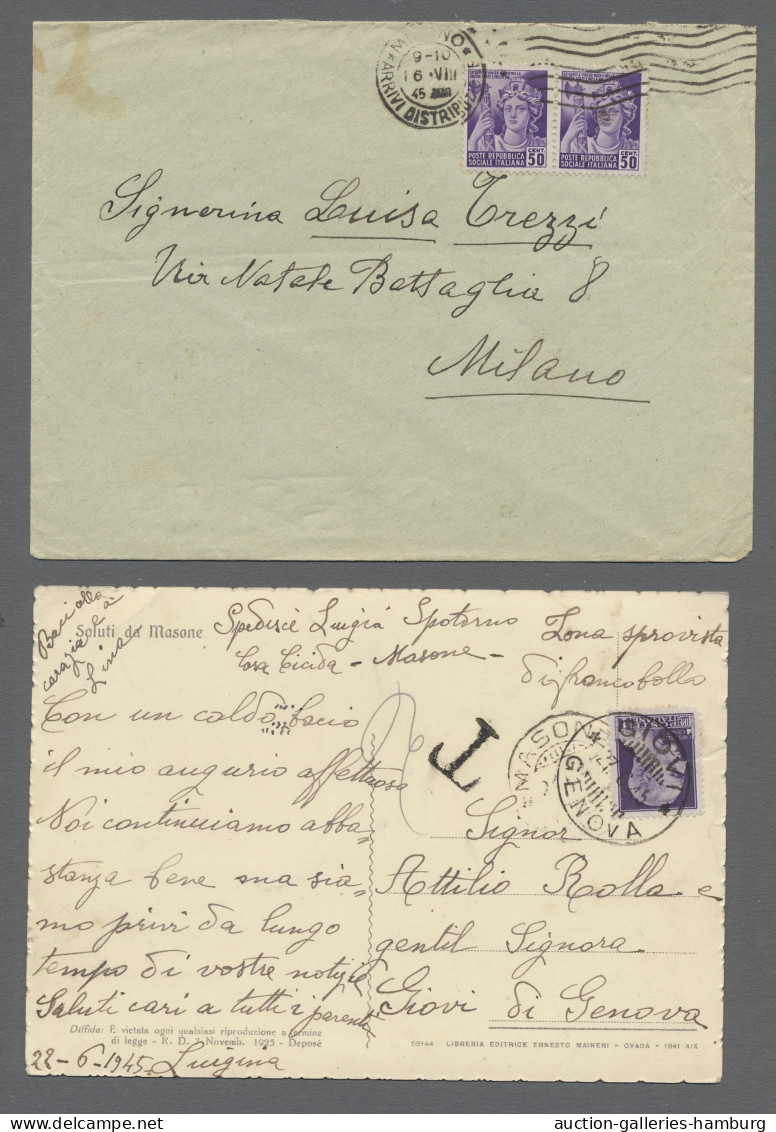 MILANO
9-10
16 VIII
45
ARRIVI DISTRIBUZ
POSTE REPUBBLICA
SOCIALE ITALIANA
CENT.
50
POSTE REPUBBLICA
SOCIALE ITALIANA
CENT.
50
Signorina Luisa Trezzi
Via Natale Battaglia 8
Milano
Baci alla
Lina
Saluti da Masone
Spedisce Luigia Spotorno
Masone
Zona sprovista
di francobolla
Con un caldo bacio
il mio augurio affettuoso
Noi continuiamo abba=
stanza bene ma sia=
mo privi da lungo
tempo di vostre notizie
Saluti cari a tutti i parenti
22-6-1945 Luigina
T
MASONE
GIOVI
GENOVA
Signor
Attilio Rolla e
gentil Signora
Giovi di Genova
Diffida: È vietata ogni qualsiasi riproduzione a termine
di legge - R. D. 7 Novemb. 1925 - Deposé
58144 LIBRERIA EDITRICE ERNESTO MAINERI - OVADA - 1941 XIX
auction-galleries-hamburg.com